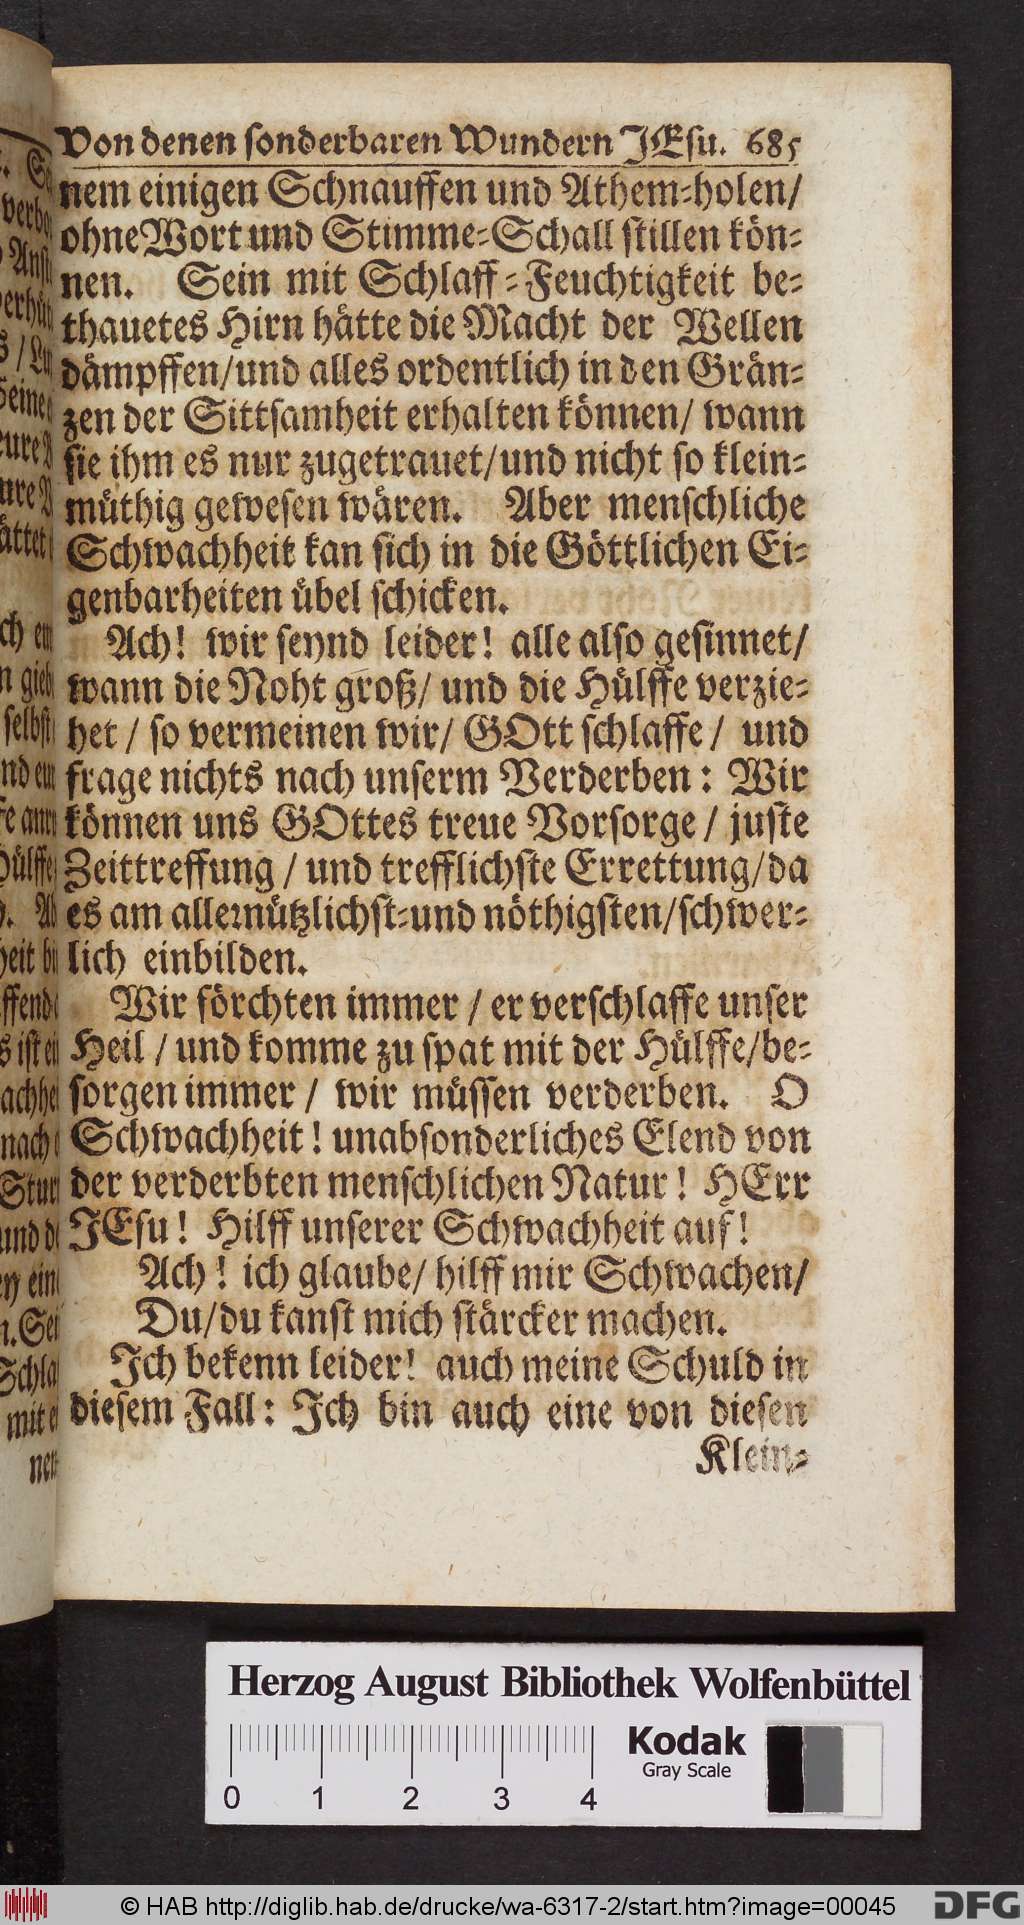 Von denen sonderbaren Wundern JEsu. 685
nem einigen Schnauffen und Athem-holen/
ohne Wort und Stimme-Schall stillen kön-
nen. Sein mit Schlaff-Feuchtigkeit be-
thauetes Hirn hätte die Macht der Wellen
dämpffen/und alles ordentlich in den Grän-
zen der Sittsamheit erhalten können/ wann
sie ihm es nur zugetrauet/und nicht so klein-
müthig gewesen wären. Aber menschliche
Schwachheit kan sich in die Göttlichen Ei-
genbarheiten übel schicken.
Ach! wir seynd leider! alle also gesinnet/
wann die Noht groß/ und die Hülffe verzie-
het / so vermeinen wir/ GOtt schlaffe / und
frage nichts nach unserm Verderben: Wir
können uns GOttes treue Vorsorge / juste
Zeittreffung / und trefflichste Errettung/da
es am allernützlichst-und nöthigsten/schwer-
lich einbilden.
Wir förchten immer / er verschlaffe unser
Heil / und komme zu spat mit der Hülffe/be-
sorgen immer / wir müssen verderben. O
Schwachheit! unabsonderliches Elend von
der verderbten menschlichen Natur! HErr
JEsu! Hilff unserer Schwachheit auf!
Ach! ich glaube/ hilff mir Schwachen/
Du/du kanst mich stärcker machen.
Ich bekenn leider! auch meine Schuld in
diesem Fall: Ich bin auch eine von diesen
Klein-
Herzog August Bibliothek Wolfenbüttel
Kodak
Gray Scale
0 1 2 3 4
© HAB http://diglib.hab.de/drucke/wa-6317-2/start.htm?image=00045
DFG